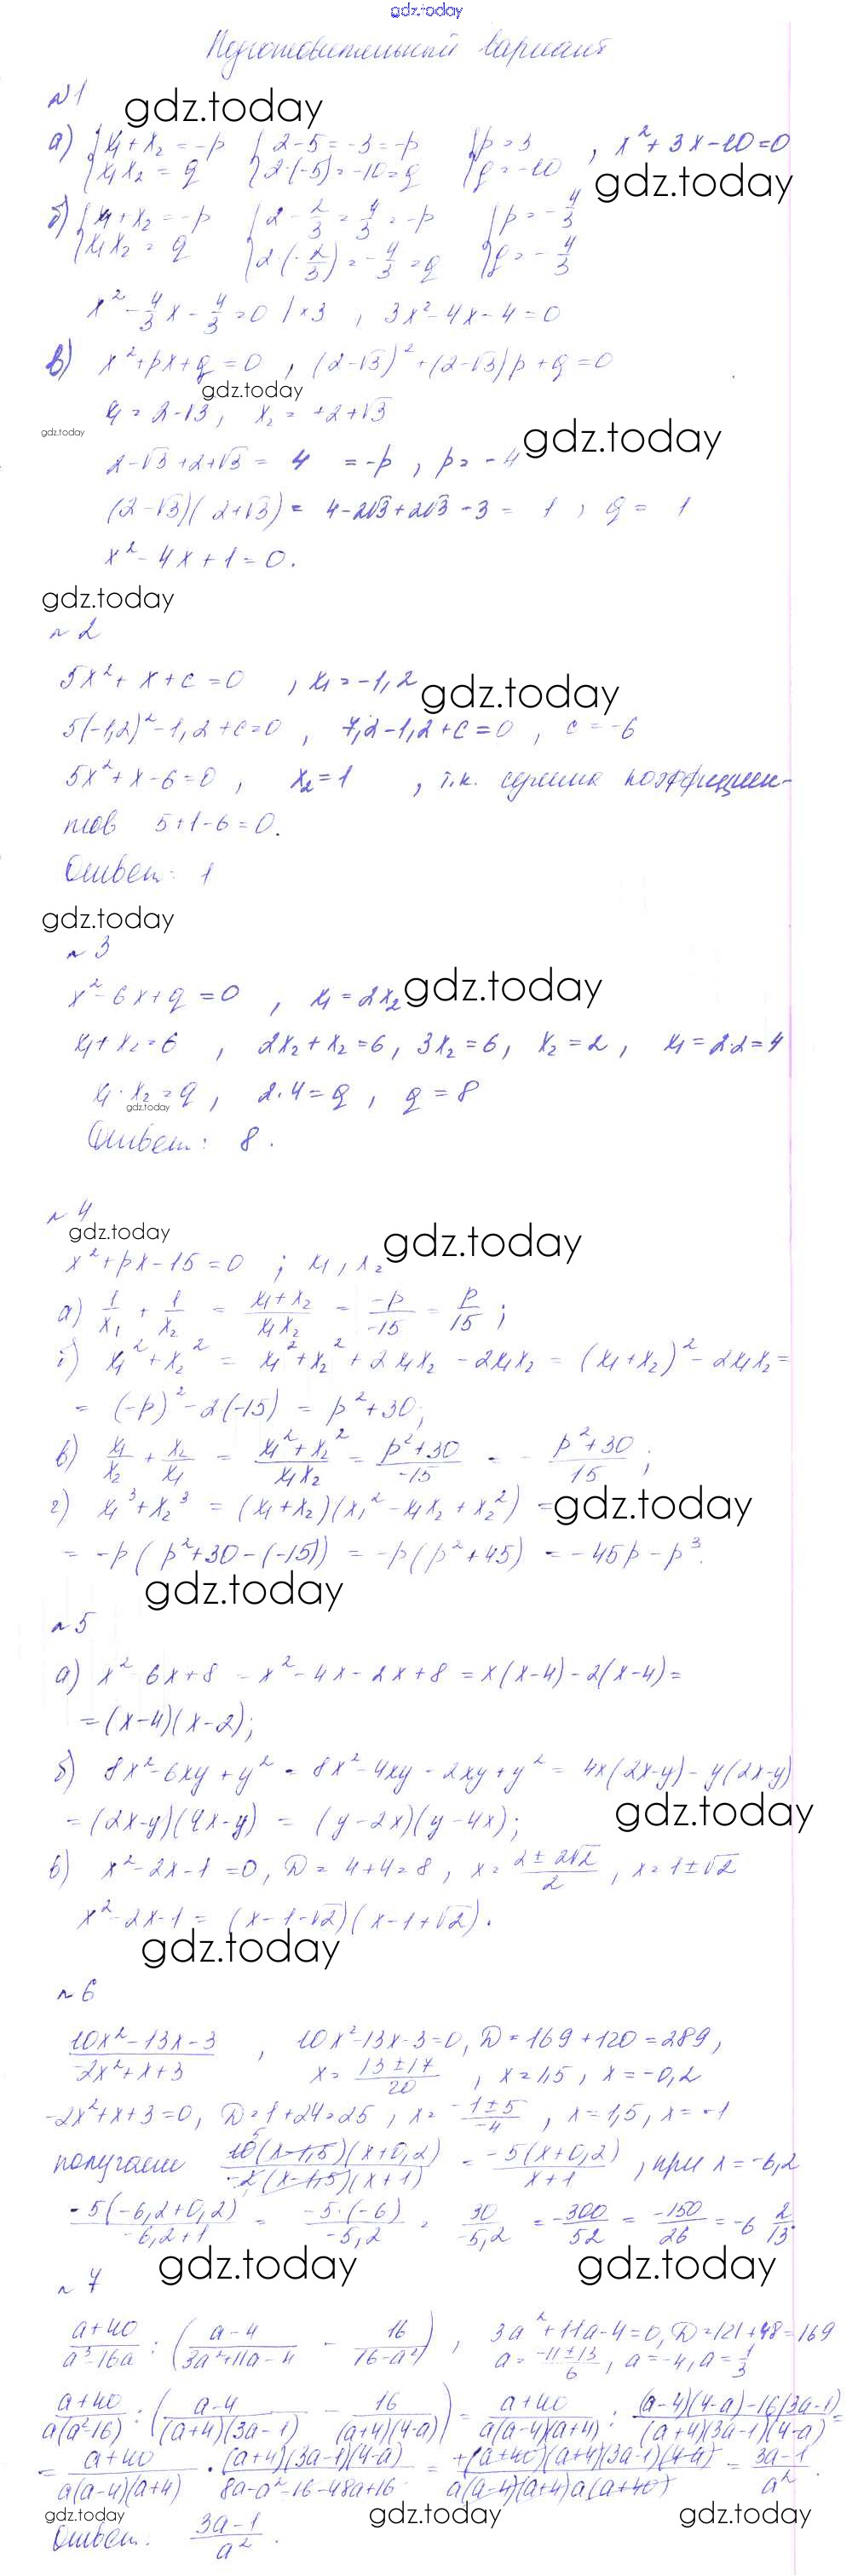 gdz.today
Подготовительный вариант
№1
gdz.today
а) { x₁ + x₂ = -p { 2-5 = -3 = -p { p = 3 , x² + 3x - 10 = 0
{ x₁x₂ = q { 2·(-5) = -10 = q { q = -10
gdz.today
б) { x₁ + x₂ = -p { 2 - 2/3 = 4/3 = -p { p = -4/3
{ x₁x₂ = q { 2(-2/3) = -4/3 = q { q = -4/3
x² - 4/3 x - 4/3 = 0 | ×3 , 3x² - 4x - 4 = 0
в) x² + px + q = 0 , (2-√3)² + (2-√3)p + q = 0
gdz.today
x₁ = 2-√3 , x₂ = +2+√3
gdz.today
gdz.today
2-√3+2+√3 = 4 = -p , p = -4
(2-√3)(2+√3) = 4-2√3+2√3-3 = 1 , q = 1
x² - 4x + 1 = 0.
gdz.today
№2
5x² + x + c = 0 , x₁ = -1,2
gdz.today
5(-1,2)² - 1,2 + c = 0 , 7,2 - 1,2 + c = 0 , c = -6
5x² + x - 6 = 0 , x₂ = 1 , т.к. сумма коэффициен-
тов 5+1-6=0.
Ответ: 1
gdz.today
№3
x² - 6x + q = 0 , x₁ = 2x₂
gdz.today
x₁ + x₂ = 6 , 2x₂ + x₂ = 6 , 3x₂ = 6 , x₂ = 2 , x₁ = 2·2 = 4
x₁·x₂ = q , 2·4 = q , q = 8
gdz.today
Ответ: 8.
№4
gdz.today
gdz.today
x² + px - 15 = 0 ; x₁, x₂
а) 1/x₁ + 1/x₂ = (x₁+x₂)/(x₁x₂) = -p/-15 = p/15 ;
б) x₁² + x₂² = x₁² + x₂² + 2x₁x₂ - 2x₁x₂ = (x₁+x₂)² - 2x₁x₂ =
= (-p)² - 2(-15) = p² + 30;
в) x₁/x₂ + x₂/x₁ = (x₁²+x₂²)/(x₁x₂) = (p²+30)/-15 = - (p²+30)/15 ;
г) x₁³ + x₂³ = (x₁+x₂)(x₁² - x₁x₂ + x₂²) =
gdz.today
= -p(p²+30-(-15)) = -p(p²+45) = -45p - p³.
gdz.today
№5
а) x² - 6x + 8 = x² - 4x - 2x + 8 = x(x-4) - 2(x-4) =
= (x-4)(x-2);
б) 8x² - 6xy + y² = 8x² - 4xy - 2xy + y² = 4x(2x-y) - y(2x-y)
= (2x-y)(4x-y) = (y-2x)(y-4x);
gdz.today
в) x² - 2x - 1 = 0, D = 4+4 = 8 , x = (2±2√2)/2 , x = 1±√2
x² - 2x - 1 = (x-1-√2)(x-1+√2).
gdz.today
№6
(10x²-13x-3)/(-2x²+x+3) , 10x²-13x-3=0, D = 169+120 = 289,
x = (13±17)/20 , x = 1,5 , x = -0,2
-2x²+x+3=0, D = 1+24 = 25 , x = (-1±5)/-4 , x = 1,5 , x = -1
получаем 10(x-1,5)(x+0,2)/-2(x-1,5)(x+1) = -5(x+0,2)/(x+1) , при x = -6,2
-5(-6,2+0,2)/(-6,2+1) = -5·(-6)/-5,2 = 30/-5,2 = -300/52 = -150/26 = -6 2/13.
gdz.today
gdz.today
№7
(a+40)/(a³-16a) : ((a-4)/(3a²+11a-4) - 16/(16-a²)) , 3a²+11a-4=0, D = 121+48 = 169
a = (-11±13)/6 , a = -4, a = 1/3
(a+40)/(a(a²-16)) : ((a-4)/((a+4)(3a-1)) - 16/((a+4)(4-a))) = (a+40)/(a(a-4)(a+4)) : ((a-4)(4-a)-16(3a-1))/((a+4)(3a-1)(4-a)) =
= (a+40)/(a(a-4)(a+4)) · (a+4)(3a-1)(4-a)/(8a-a²-16-48a+16) = +(a+40)(a+4)(3a-1)(4-a)/(a(a-4)(a+4)a(a+40)) = (3a-1)/a² .
gdz.today
gdz.today
gdz.today
Ответ. (3a-1)/a² .